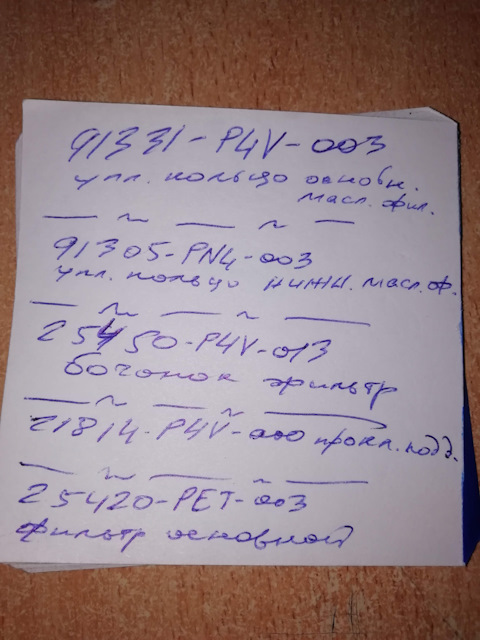 91331-P4V-003
упл. кольцо основн.
масл. фил.
91305-PN4-003
упл. кольцо нижн. масл. ф.
25450-P4V-013
бочонок фильтр
21814-P4V-000 прокл. подд.
25420-PET-003
фильтр основной